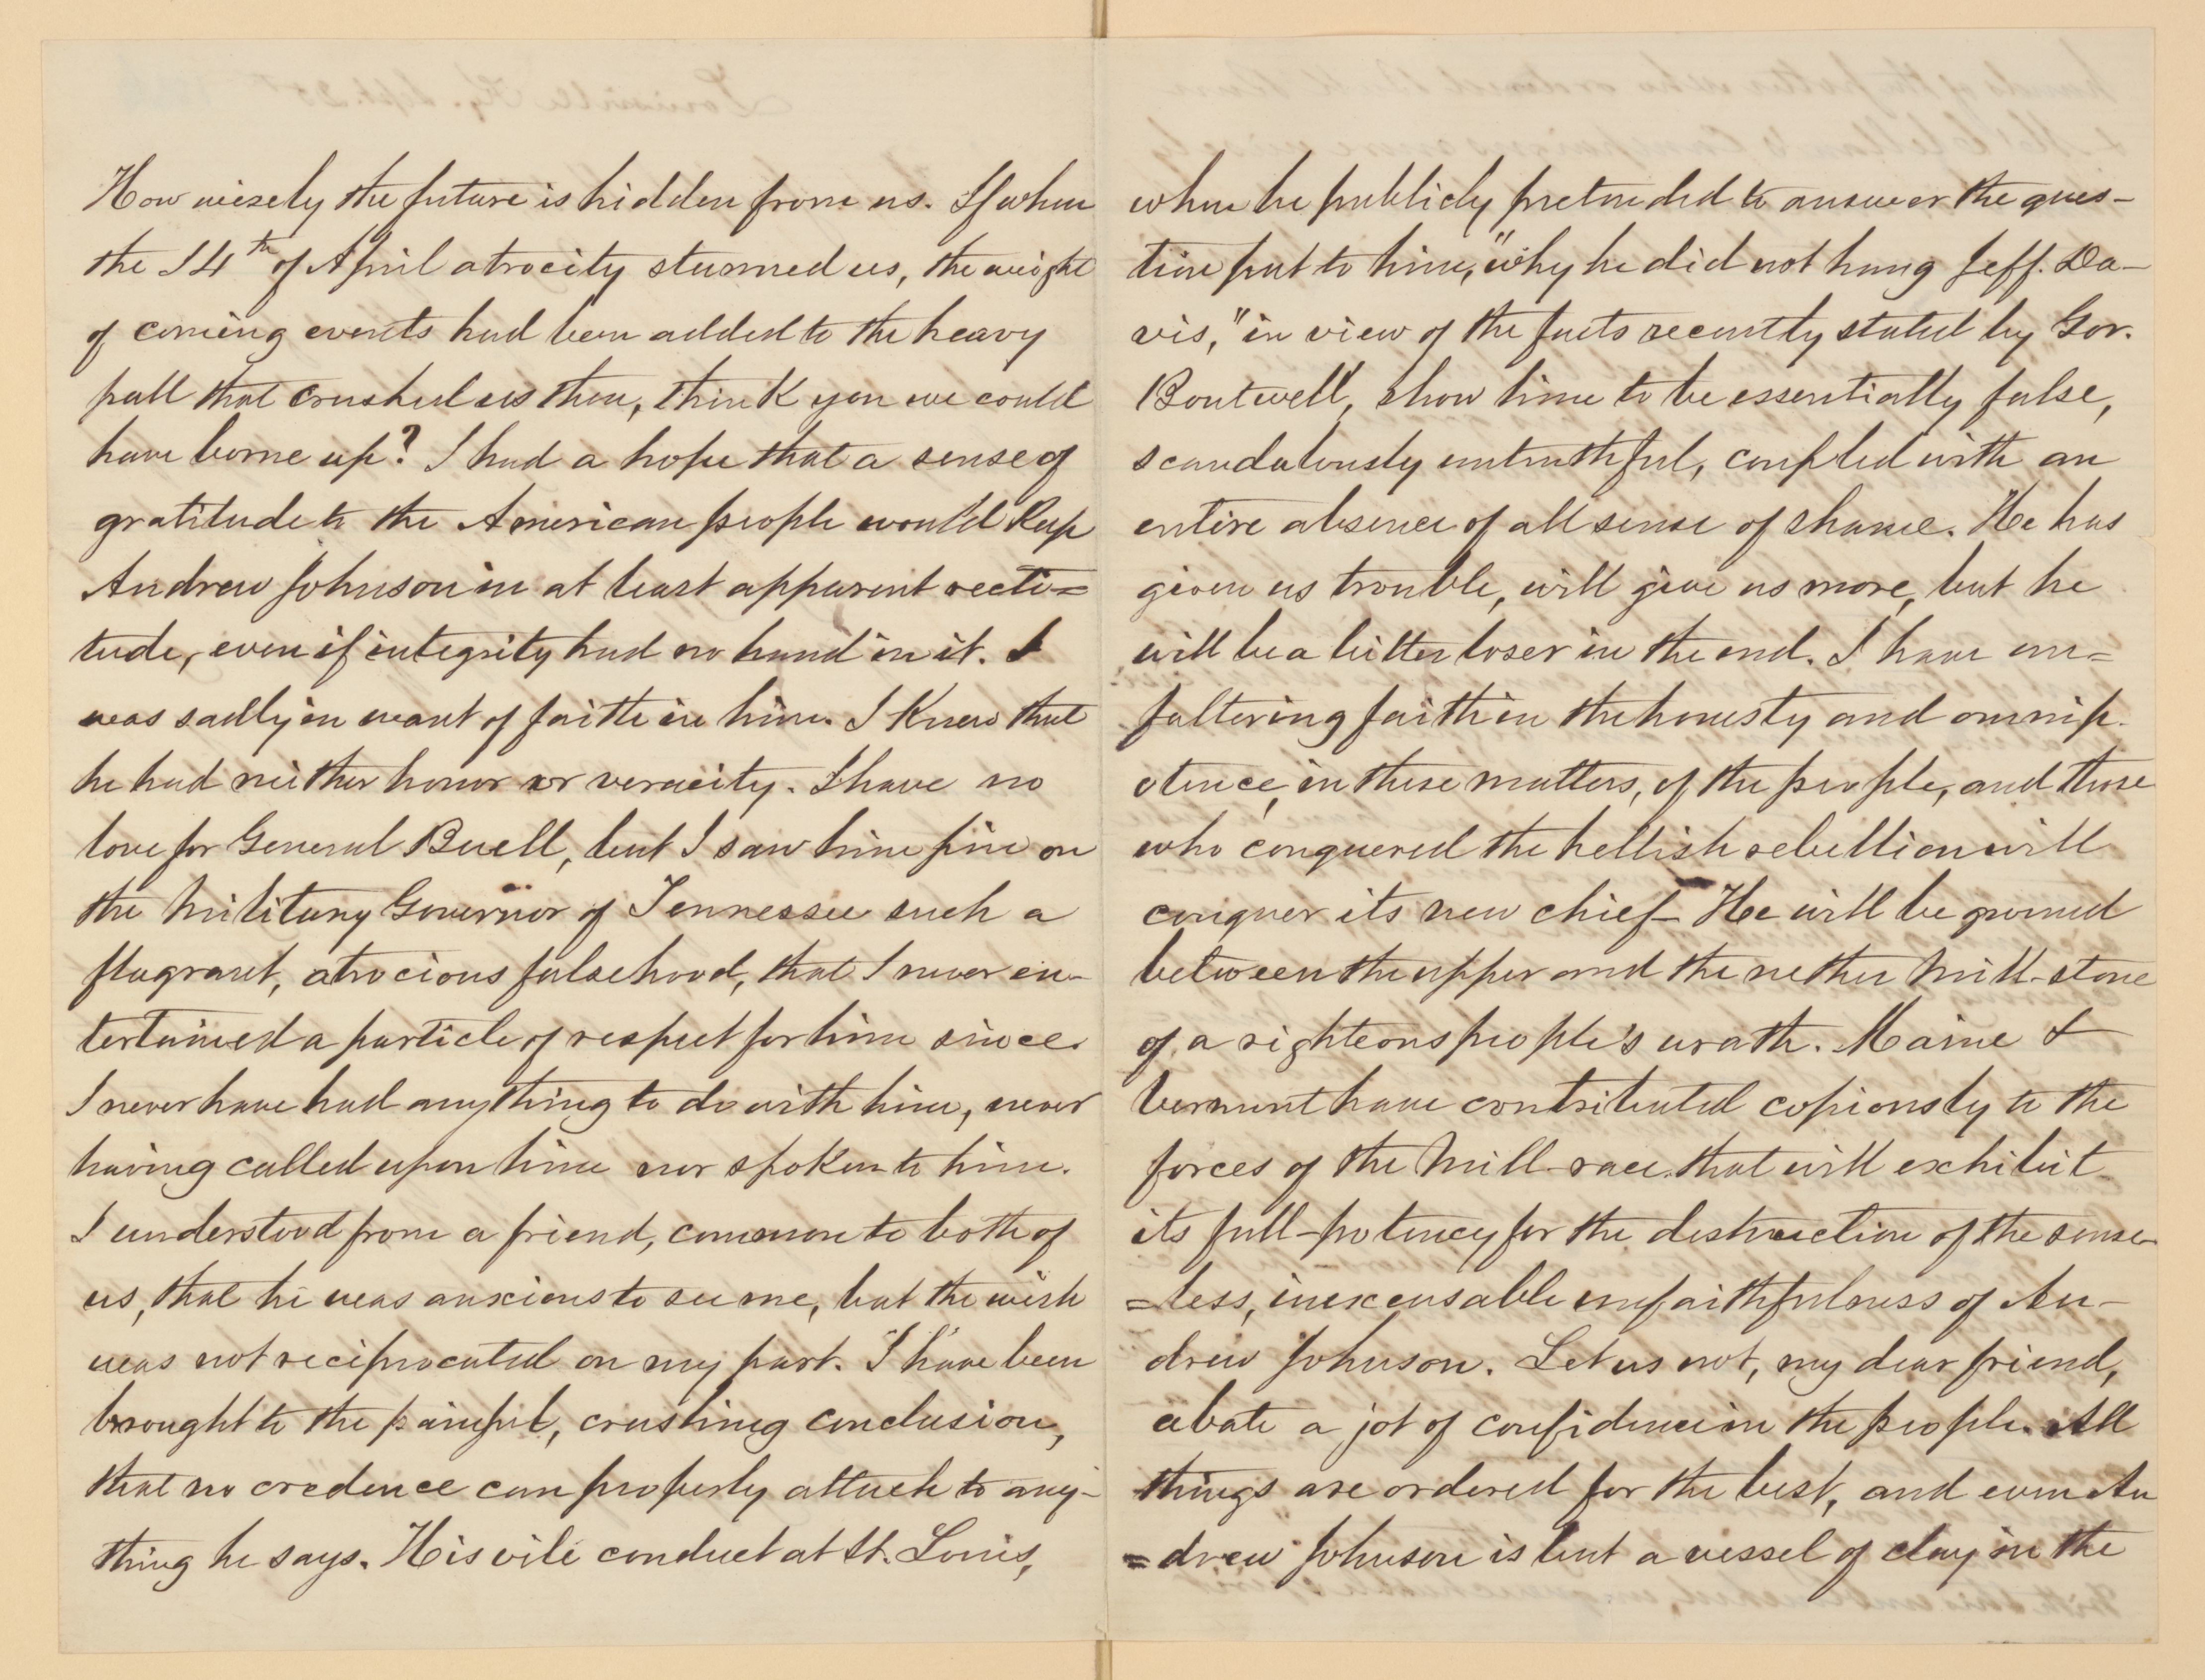 How wisely the future is hidden from us. If when
the 14th of April atrocity stunned us, the weight
of coming events had been added to the heavy
pall that crushed us then, think you we could
have borne up? I had a hope that a sense of
gratitude to the American people would keep
Andrew Johnson in at least apparent recti=
tude, even if integrity had no hand in it. I
was sadly in want of faith in him. I knew that
he had neither honor nor veracity. I have no
love for General Buell, but I saw him pin on
the Military Governor of Tennessee such a
flagrant, atrocious falsehood, that I never en-
tertained a particle of respect for him since.
I never have had any thing to do with him, never
having called upon him nor spoken to him.
I understood from a friend, common to both of
us, that he was anxious to see me, but the wish
was not reciprocated on my part. I have been
brought to the painful, crushing conclusion,
that no credence can properly attach to any-
thing he says. His vile conduct at St. Louis,
when he publicly pretended to answer the ques-
tion put to him, "why he did not hang Jeff. Da-
vis," in view of the facts recently stated by Gov.
Boutwell, show him to be essentially false,
scandalously untruthful, coupled with an
entire absence of all sense of shame. He has
given us trouble, will give us more, but he
will be a bitter loser in the end. I have un=
faltering faith in the honesty and omnip-
otence, in these matters, of the people, and those
who conquered the hellish rebellion will
conquer its new chief- He will be ground
between the upper and the nether mill-stone
of a righteous people's wrath. Maine &
Vermont have contributed copiously to the
forces of the mill-race that will exhibit
its full-potency for the destruction of the sense-
=less, inexcusable unfaithfulness of An-
drew Johnson. Let us not, my dear friend,
abate a jot of confidence in the people. All
things are ordered for the best, and even An
=drew Johnson is but a vessel of clay in the